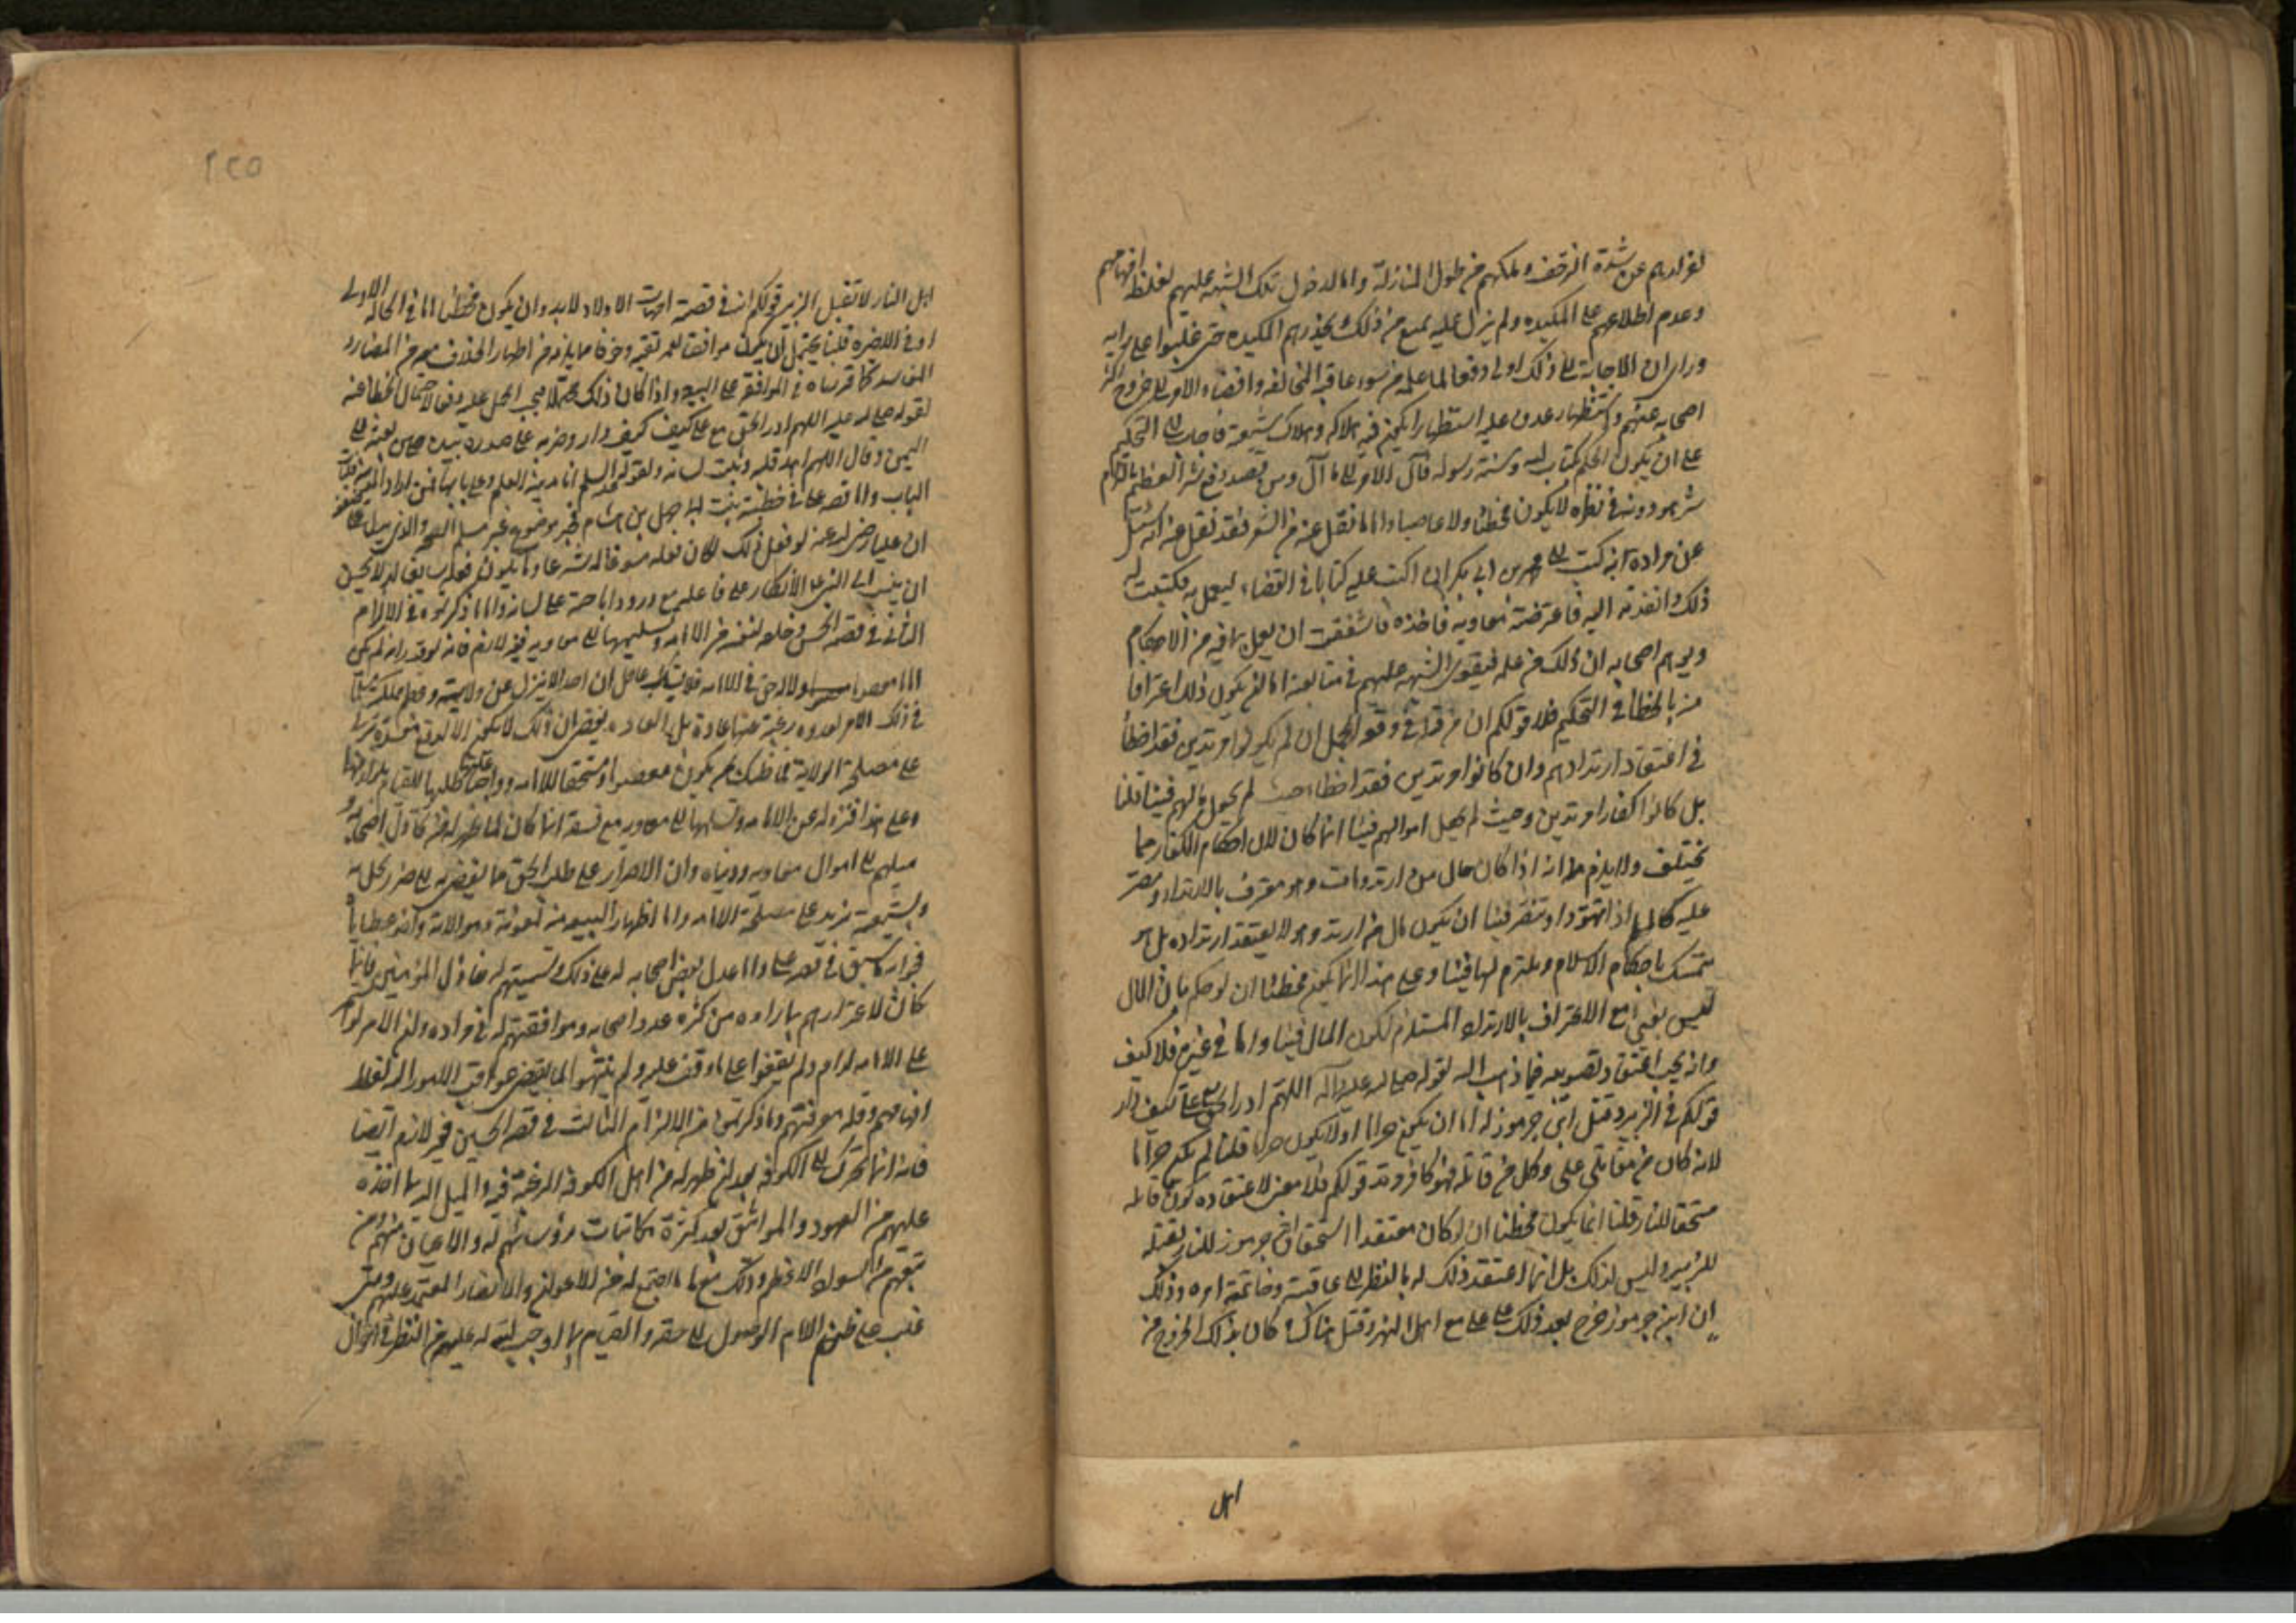 لفرارهم عن شدة الزحف وملكهم من طول المنازلة واما لدخول تلك الشبهة عليهم لغلظ افهامهم
وعدم اطلاعهم على المكيده ولم يزل عليه يمنع من ذلك ويحذرهم المكيده حتى غلبوا على رايه
وراى ان الاجابة الى ذلك اولى دفعا لما علمه من سوء عاقبة المخالفه وافضاء الامر الى خروج اكثر
اصحابه عنه واستظهار عدوه عليه استظهارا يكون فيه هلاكه وهلاك شيعته فاجاب الى التحكيم
على ان يكون الحكم كتاب الله وسنة رسوله فآل الامر الى ما آل ومن قصد دفع شر العظيم بالتزام
شر هو دونه في نظره لا يكون مخطئا ولا عاصيا واما ما نقل عنه من الشعر فقد نقل عنه انه سئل
عن مراده انه كتب الى محمد بن ابي بكر انى اكتب عليه كتابا في القضاء ليعمل به فكتبت له
ذلك وانفذته اليه فاعترضته معاويه فاخذه فاشفقت ان يعمل بما فيه من الاحكام
ويوهم اصحابه ان ذلك من علمه فيقوى الشبهه عليهم في متابعته اما لم يكون ذلك اعترافا
منه بالخطأ في التحكيم فلا قولكم ان من قتل في وقعة الجمل ان لم يكونوا مرتدين فقد اخطأ
في اعتقاد ارتدادهم وان كانوا مرتدين فقد اخطاء حيث لم يجعل مالهم فيئا قلنا
بل كانوا كفارا مرتدين وحيث لم يجعل اموالهم فيئا انما كان لان احكام الكفار مما
يختلف ولا يلزم من انه اذا كان مال من ارتد ومات وهو معترف بالارتداد ومصر
عليه كما اذا تهود او تنصر فيئا ان يكون مال من ارتد وهو لا يعتقد ارتداده بل هو
متمسك باحكام الاسلام وملتزم لها فيئا وعلى هذا انما يكون مخطئا ان لو حكم بان المال
ليس بفيئ مع الاعتراف بالارتداد المستلزم لكون المال فيئا واما في غيره فلا كيف
وانه يجب اعتقاد تصويبه فيما ذهب اليه لقوله صلى الله عليه وآله اللهم ادر الحق مع على كيف دار
قولكم في الزبير وقتل ابن جرموز له اما ان يكون حراما او لا يكون حراما قلنا لم يكن حراما
لانه كان من مقاتلى على وكل من قاتله فهو كافر مرتد قولكم فلا معنى لاعتقاده كون قاتله
مستحقا للنار قلنا انما يكون مخطئا ان لو كان معتقدا استحقاق ابن جرموز للنار بقتله
للزبير وليس كذلك بل انما اعتقد ذلك له بالنظر الى عاقبته وخاتمة امره وذلك
ان ابن جرموز خرج بعد ذلك على على مع اهل النهر وقتل هناك كان بذلك الخروج من
اهل
٢٢٥
اهل النار لا بقتل الزبير قولكم انه في قصة امهات الاولاد لا بد وان يكون مخطئا اما في الحاله الاولى
او في الاخيره قلنا يحتمل ان يكون موافقا لعمر تقيه وخوفا مما يلزمه من اظهار الخلاف معهم من المضار و
المفاسد كما قررناه في الموافقة على البيعه واذا كان ذلك محتملا يجب الحمل عليه دفعا لاحتمال الخطأ عنه
لقوله صلى الله عليه اللهم ادر الحق مع على كيف دار وضربه على صدره بيده حين بعثه الى
اليمن وقال اللهم اهد قلبه وثبت لسانه ولقوله عليه السلم انا مدينة العلم وعلى بابها فمن اراد المدينة فليات
الباب واما قصة على في خطبته بنت ابى جهل بن هشام فخبر موضوع غير مسلم الصحه والذى يدل على
ان عليا رضي الله عنه لو فعل ذلك لكان فعله مسوغا له شرعا وما يكون فعله سايغا له لا يحسن
ان ينسب الى النبي الانكار على فاعله مع ورود اباحته على لسانه واما ما ذكرتموه في الالزام
الثاني في قصة الحسن وخلعه لنفسه من الامامه وتسليمها الى معاويه فغير لازم فانه لو قدر انه لم يكن
اماما معصوما ولا له حق في الامامه فلا يشك عاقل ان احدا لا ينزل عن ولايته
في ذلك الامر لعدوه رغبة عنها عادة بل العاده يقضى ان ذلك لا يكون الا لدفع مفسدة تربى
على مصلحة الولاية فما ظنك بمن يكون معصوما ومستحقا للامامه وواجبا عليه طلبها للقيام
وعلى هذا فنزوله عن الامامه وتسليمها الى معاويه مع فسقه انما كان لما ظهر له من تخاذل اصحابه و
ميلهم الى اموال معاويه ودنياه وان الاصرار على طلب الحق مما يفضى الى ضرر يحل به
وبشيعته يزيد على مصلحة الامامه واما اظهار البيعه منه لعدوه وموالاته واخذ عطاياه
فجوابه كما سبق في قصة على واما عدل بعض اصحابه له على ذلك وتسميتهم له خاذل المؤمنين فانما
كان لاغترارهم بما راوه من كثرة عدد اصحابه وموافقتهم له في مراده وان الامر لو
على الامامه لدام ولم يقفوا على ما وقف عليه ولم ينتهوا لما يقتضى عواقب الامور اليه لغلظ
افهامهم وقلة معرفتهم وما ذكرتموه من الالزام الثالث في قصة الحسين فغير لازم ايضا
فانه انما تحرك الى الكوفه بعد ان ظهر له من اهل الكوفه الرغبة فيه والميل اليه بما اخذه
عليهم من العهود والمواثيق بعد كثرة مكاتبات رؤسائهم له والاعيان منهم ومن
تبعهم من السواد الاعظم وذلك مع ما اجتمع له من الاعوان والانصار المعتمد عليهم ومتى
غلب على ظن الامام الوصول الى حقه والقيام بما اوجب الله له عليهم من النظر في احوال